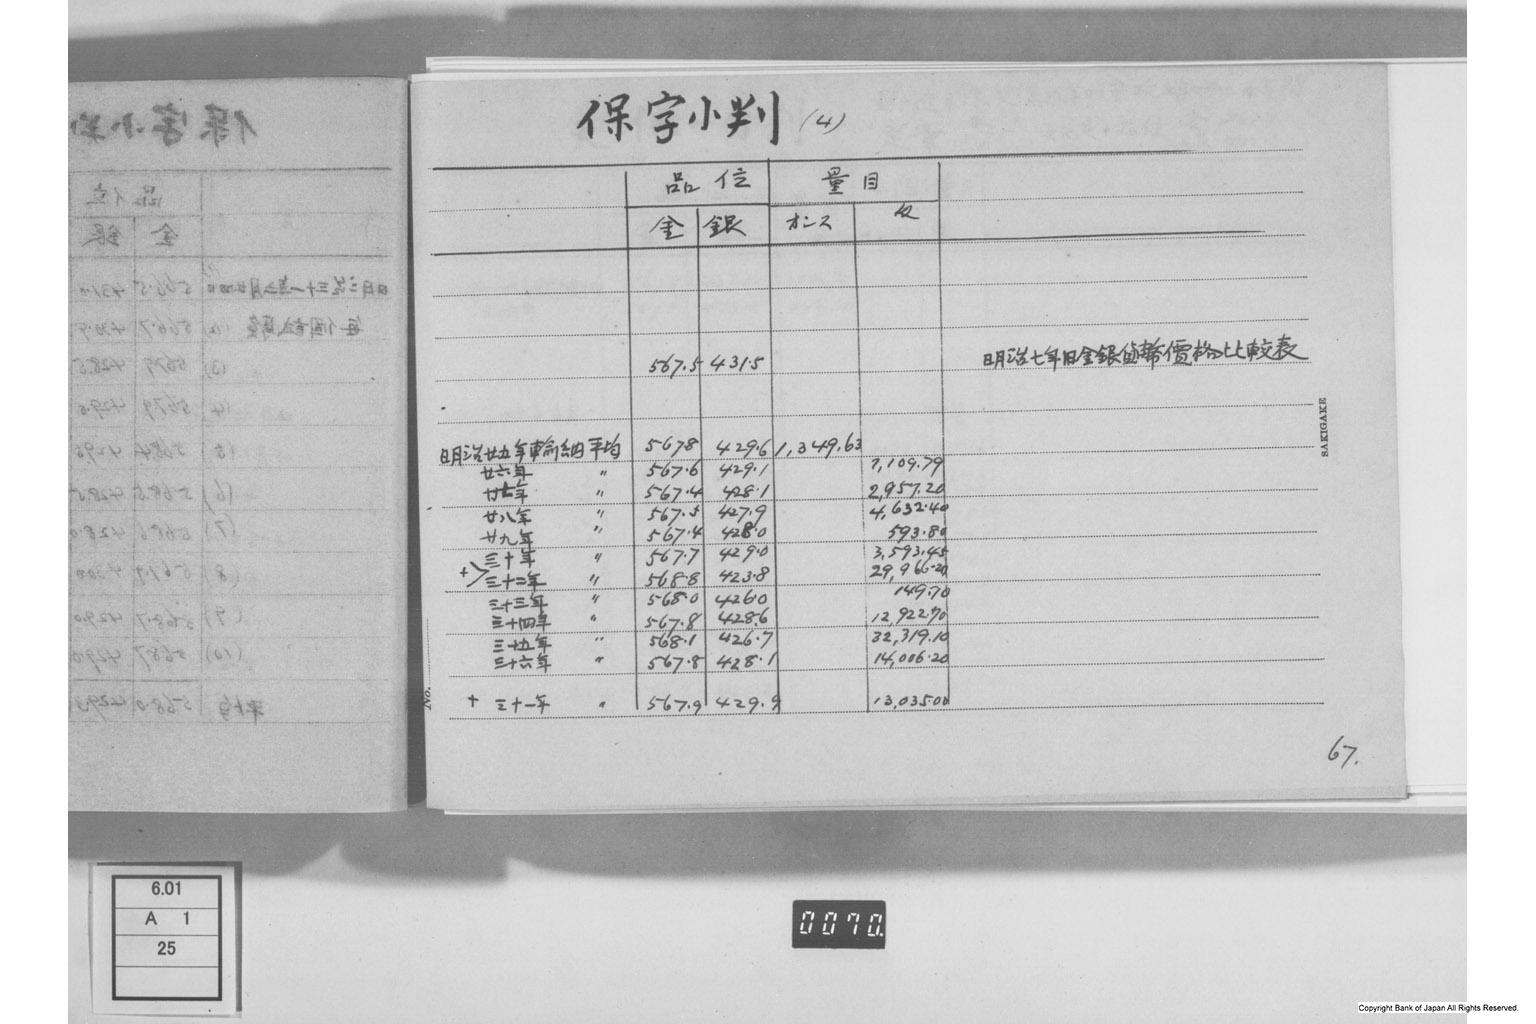 保字小判 (4)
品位 量目
金 銀 オンス 匁
567.5 431.5 明治七年旧金銀貨幣價格比較表
明治廿五年輸納平均 567.8 429.6 1,349.63
廿六年 〃 567.6 429.1 7,109.79
廿七年 〃 567.4 428.1 2,957.20
廿八年 〃 567.5 427.9 4,632.40
廿九年 〃 567.4 428.0 593.80
三十年 〃 567.7 429.0 3,593.45
+> 三十二年 〃 568.8 423.8 29,966.20
三十三年 〃 568.0 426.0 149.70
三十四年 〃 567.8 428.6 12,922.70
三十五年 〃 568.1 426.7 32,319.10
三十六年 〃 567.8 428.1 14,006.20
+ 三十一年 〃 567.9 429.9 13,035.00
SAKIGAKE
No.
67.
6.01
A 1
25
0070.
Copyright Bank of Japan All Rights Reserved.